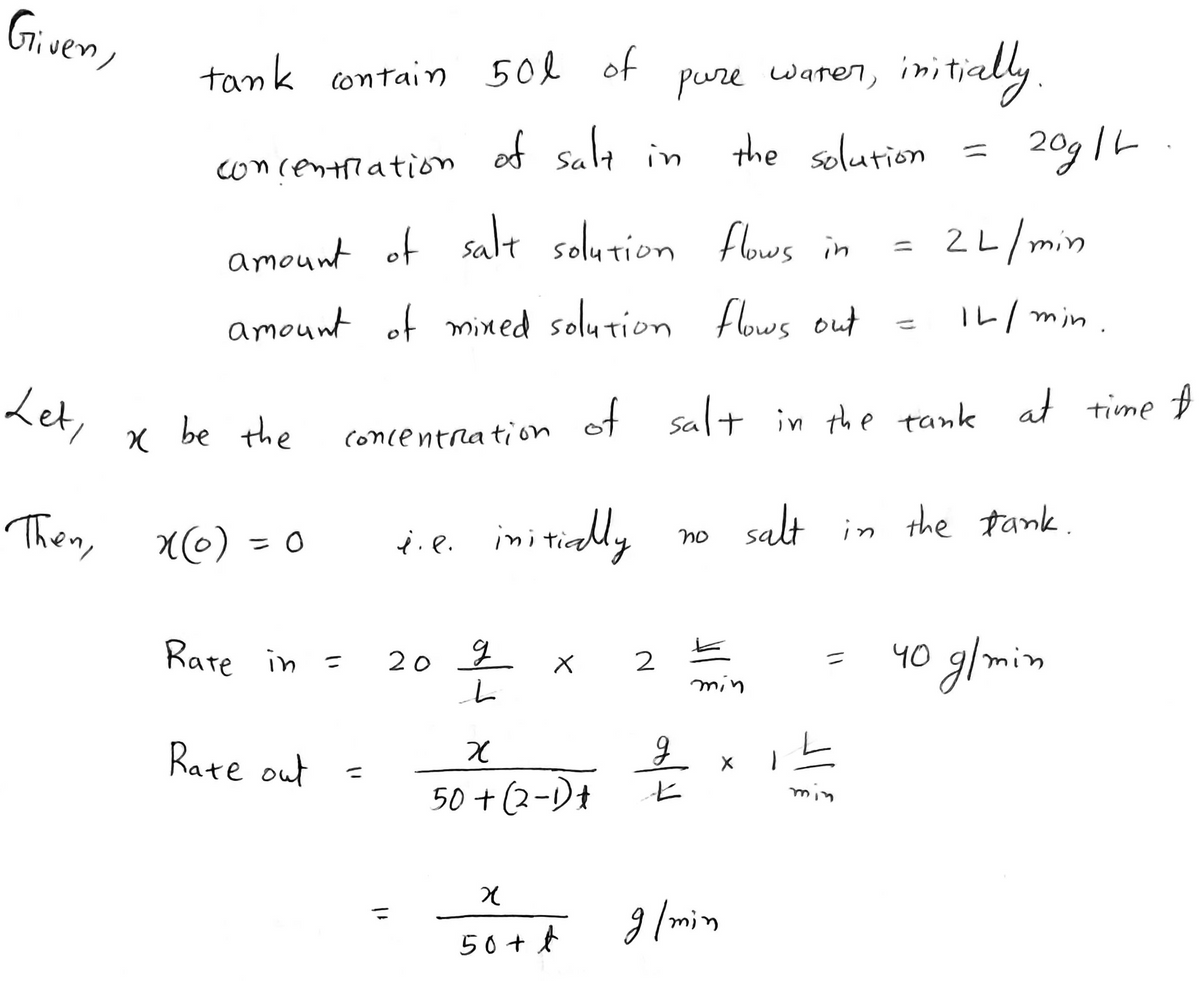 Given,
tank contain 50l of pure water, initially.
concentration of salt in the solution = 20g/L.
amount of salt solution flows in = 2L/min
amount of mixed solution flows out = 1L/min.
Let, x be the concentration of salt in the tank at time t
Then, x(0) = 0 i.e. initially no salt in the tank.
Rate in = 20 g/L × 2 L/min = 40 g/min
Rate out = x/(50+(2-1)t) g/L × 1 L/min
= x/(50+t) g/min